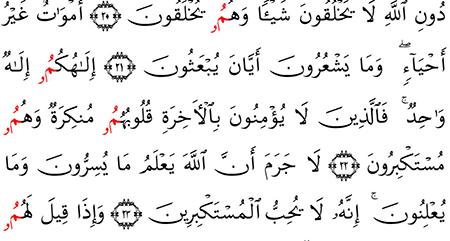 دُونِ اللَّهِ لَا يَخْلُقُونَ شَيْـًٔا وَهُمُۥ يُخْلَقُونَ ۝٢٠ أَمْوَاتٌ غَيْرُ
أَحْيَآءٍۖ وَمَا يَشْعُرُونَ أَيَّانَ يُبْعَثُونَ ۝٢١ إِلَٰهُكُمُۥ إِلَٰهٌ
وَاحِدٌۚ فَالَّذِينَ لَا يُؤْمِنُونَ بِالْأَخِرَةِ قُلُوبُهُمُۥ مُنكِرَةٌ وَهُمُۥ
مُسْتَكْبِرُونَ ۝٢٢ لَا جَرَمَ أَنَّ اللَّهَ يَعْلَمُ مَا يُسِرُّونَ وَمَا
يُعْلِنُونَۚ إِنَّهُۥ لَا يُحِبُّ الْمُسْتَكْبِرِينَ ۝٢٣ وَإِذَا قِيلَ لَهُمُۥ